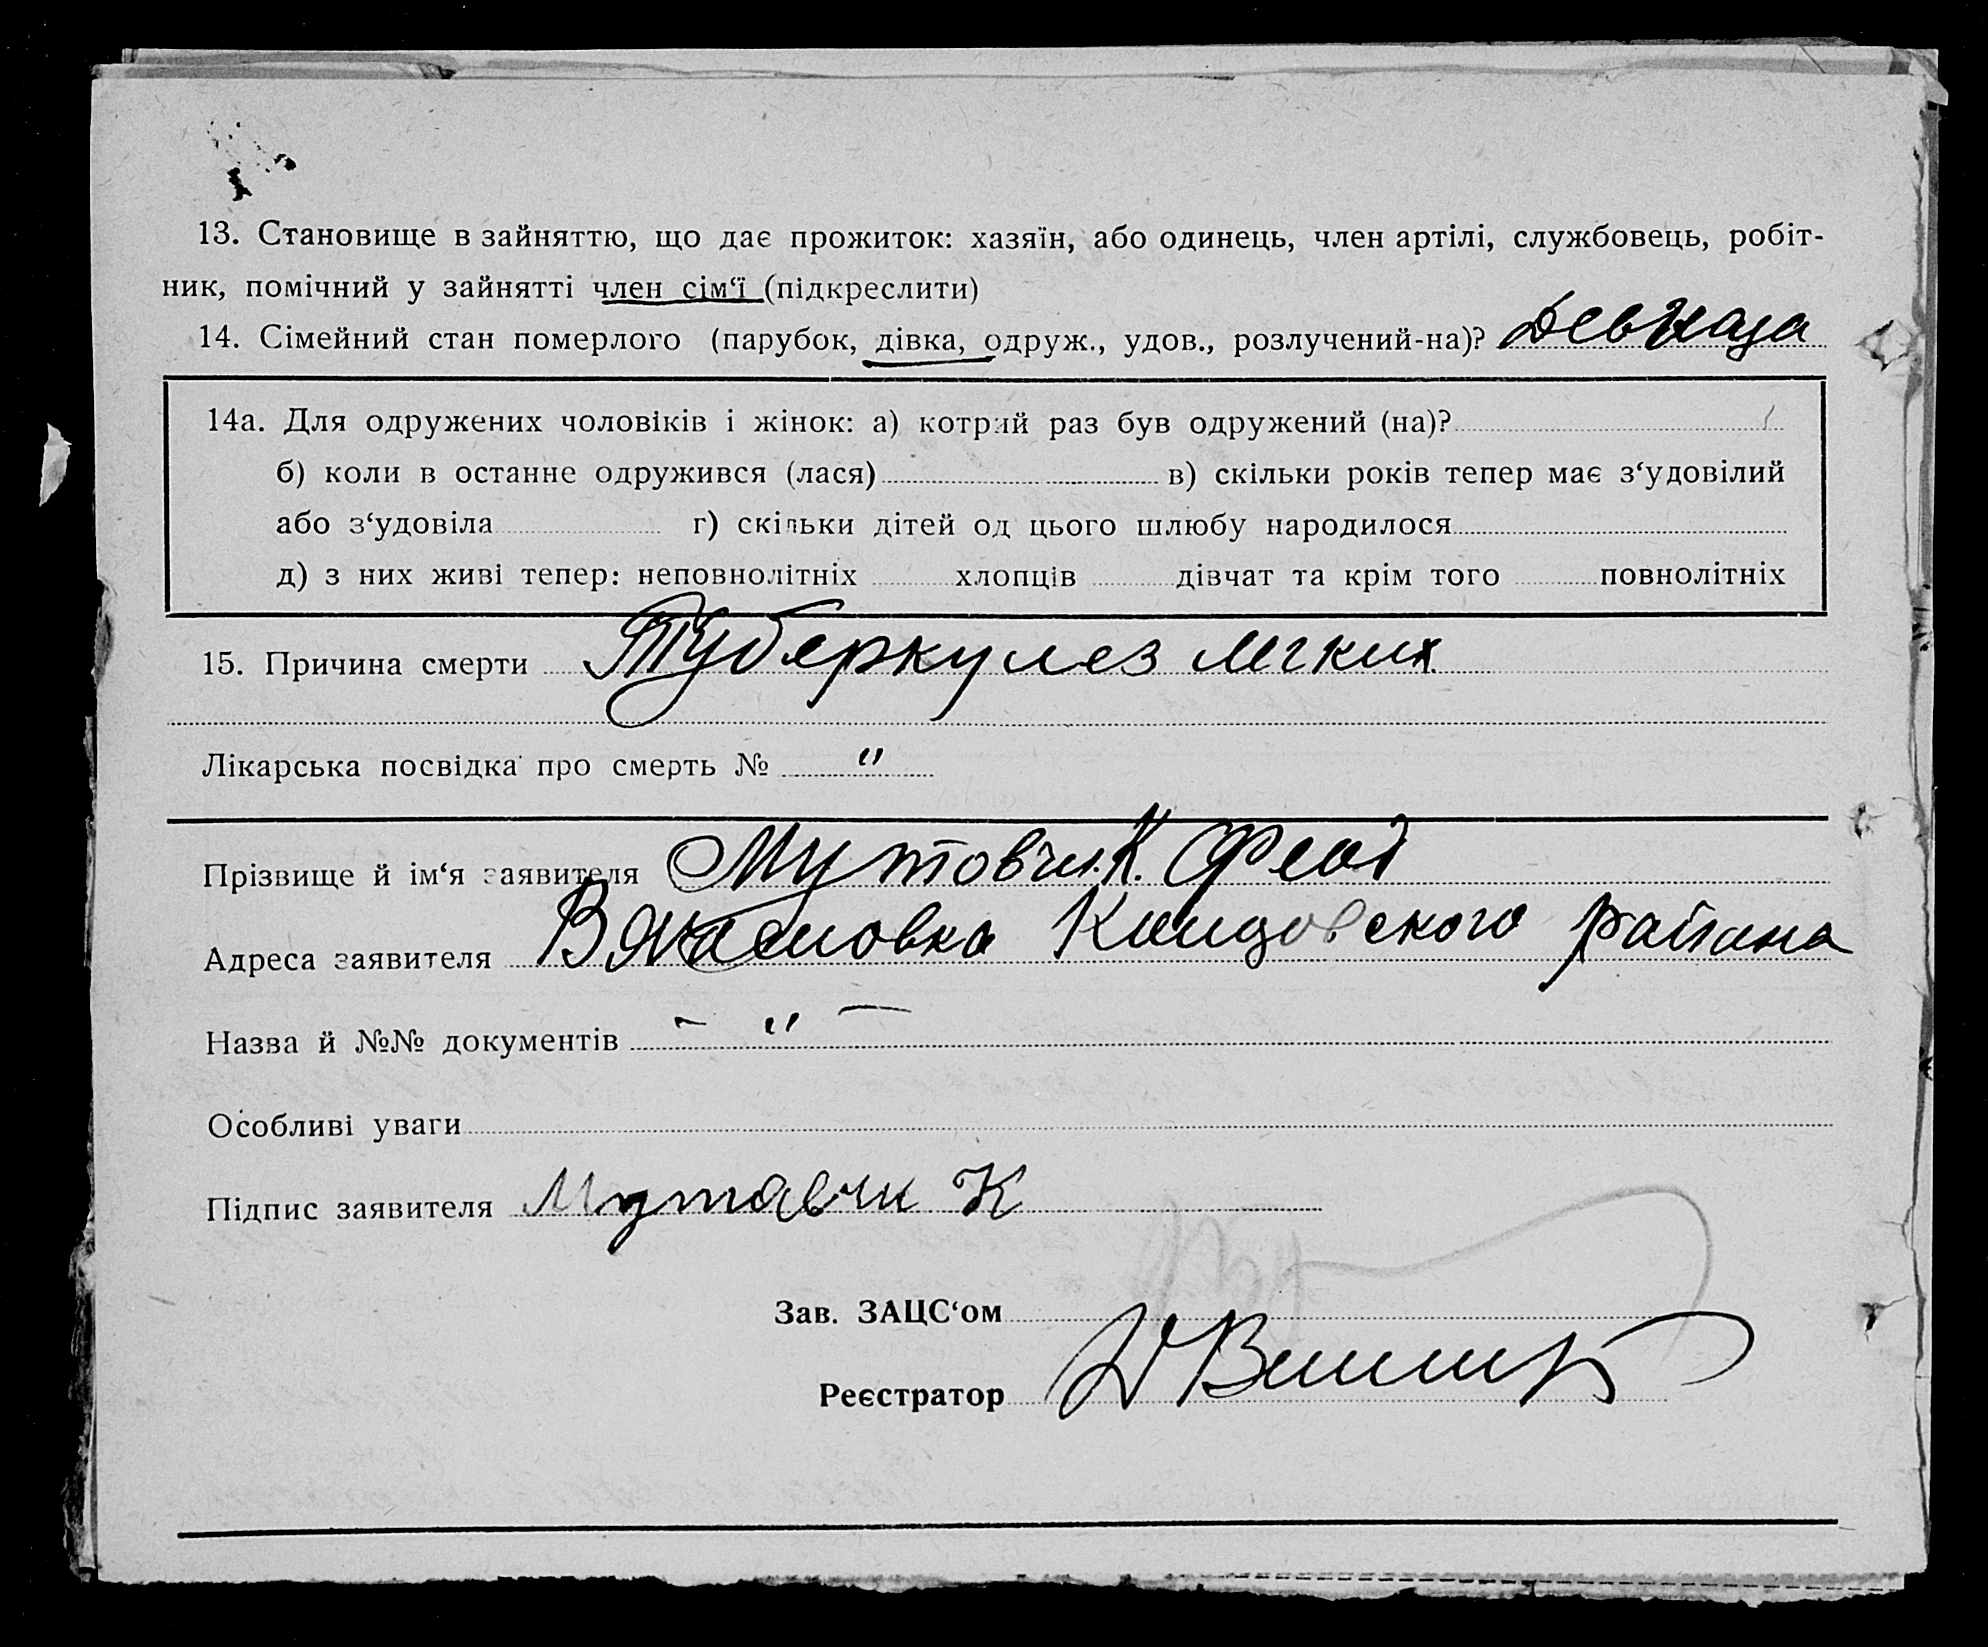 13. Становище в зайняттю, що дає прожиток: хазяїн, або одинець, член артілі, службовець, робіт-
ник, помічний у зайнятті член сім‘ї (підкреслити)
14. Сімейний стан померлого (парубок, дівка, одруж., удов., розлучений-на)? Девица
14а. Для одружених чоловіків і жінок: а) котрий раз був одружений (на)?
б) коли в останне одружився (лася) в) скільки років тепер має з‘удовілий
або з‘удовіла г) скільки дітей од цього шлюбу народилося
д) з них живі тепер: неповнолітніх хлопців дівчат та крім того повнолітніх
15. Причина смерти Туберкулез легких
Лікарська посвідка про смерть № "
Прізвище й ім‘я заявителя Мутовчи К. Феод
Адреса заявителя района
Назва й №№ документів - " -
Особливі уваги
Підпис заявителя Мутавчи К
Зав. ЗАЦС‘ом
Реєстратор